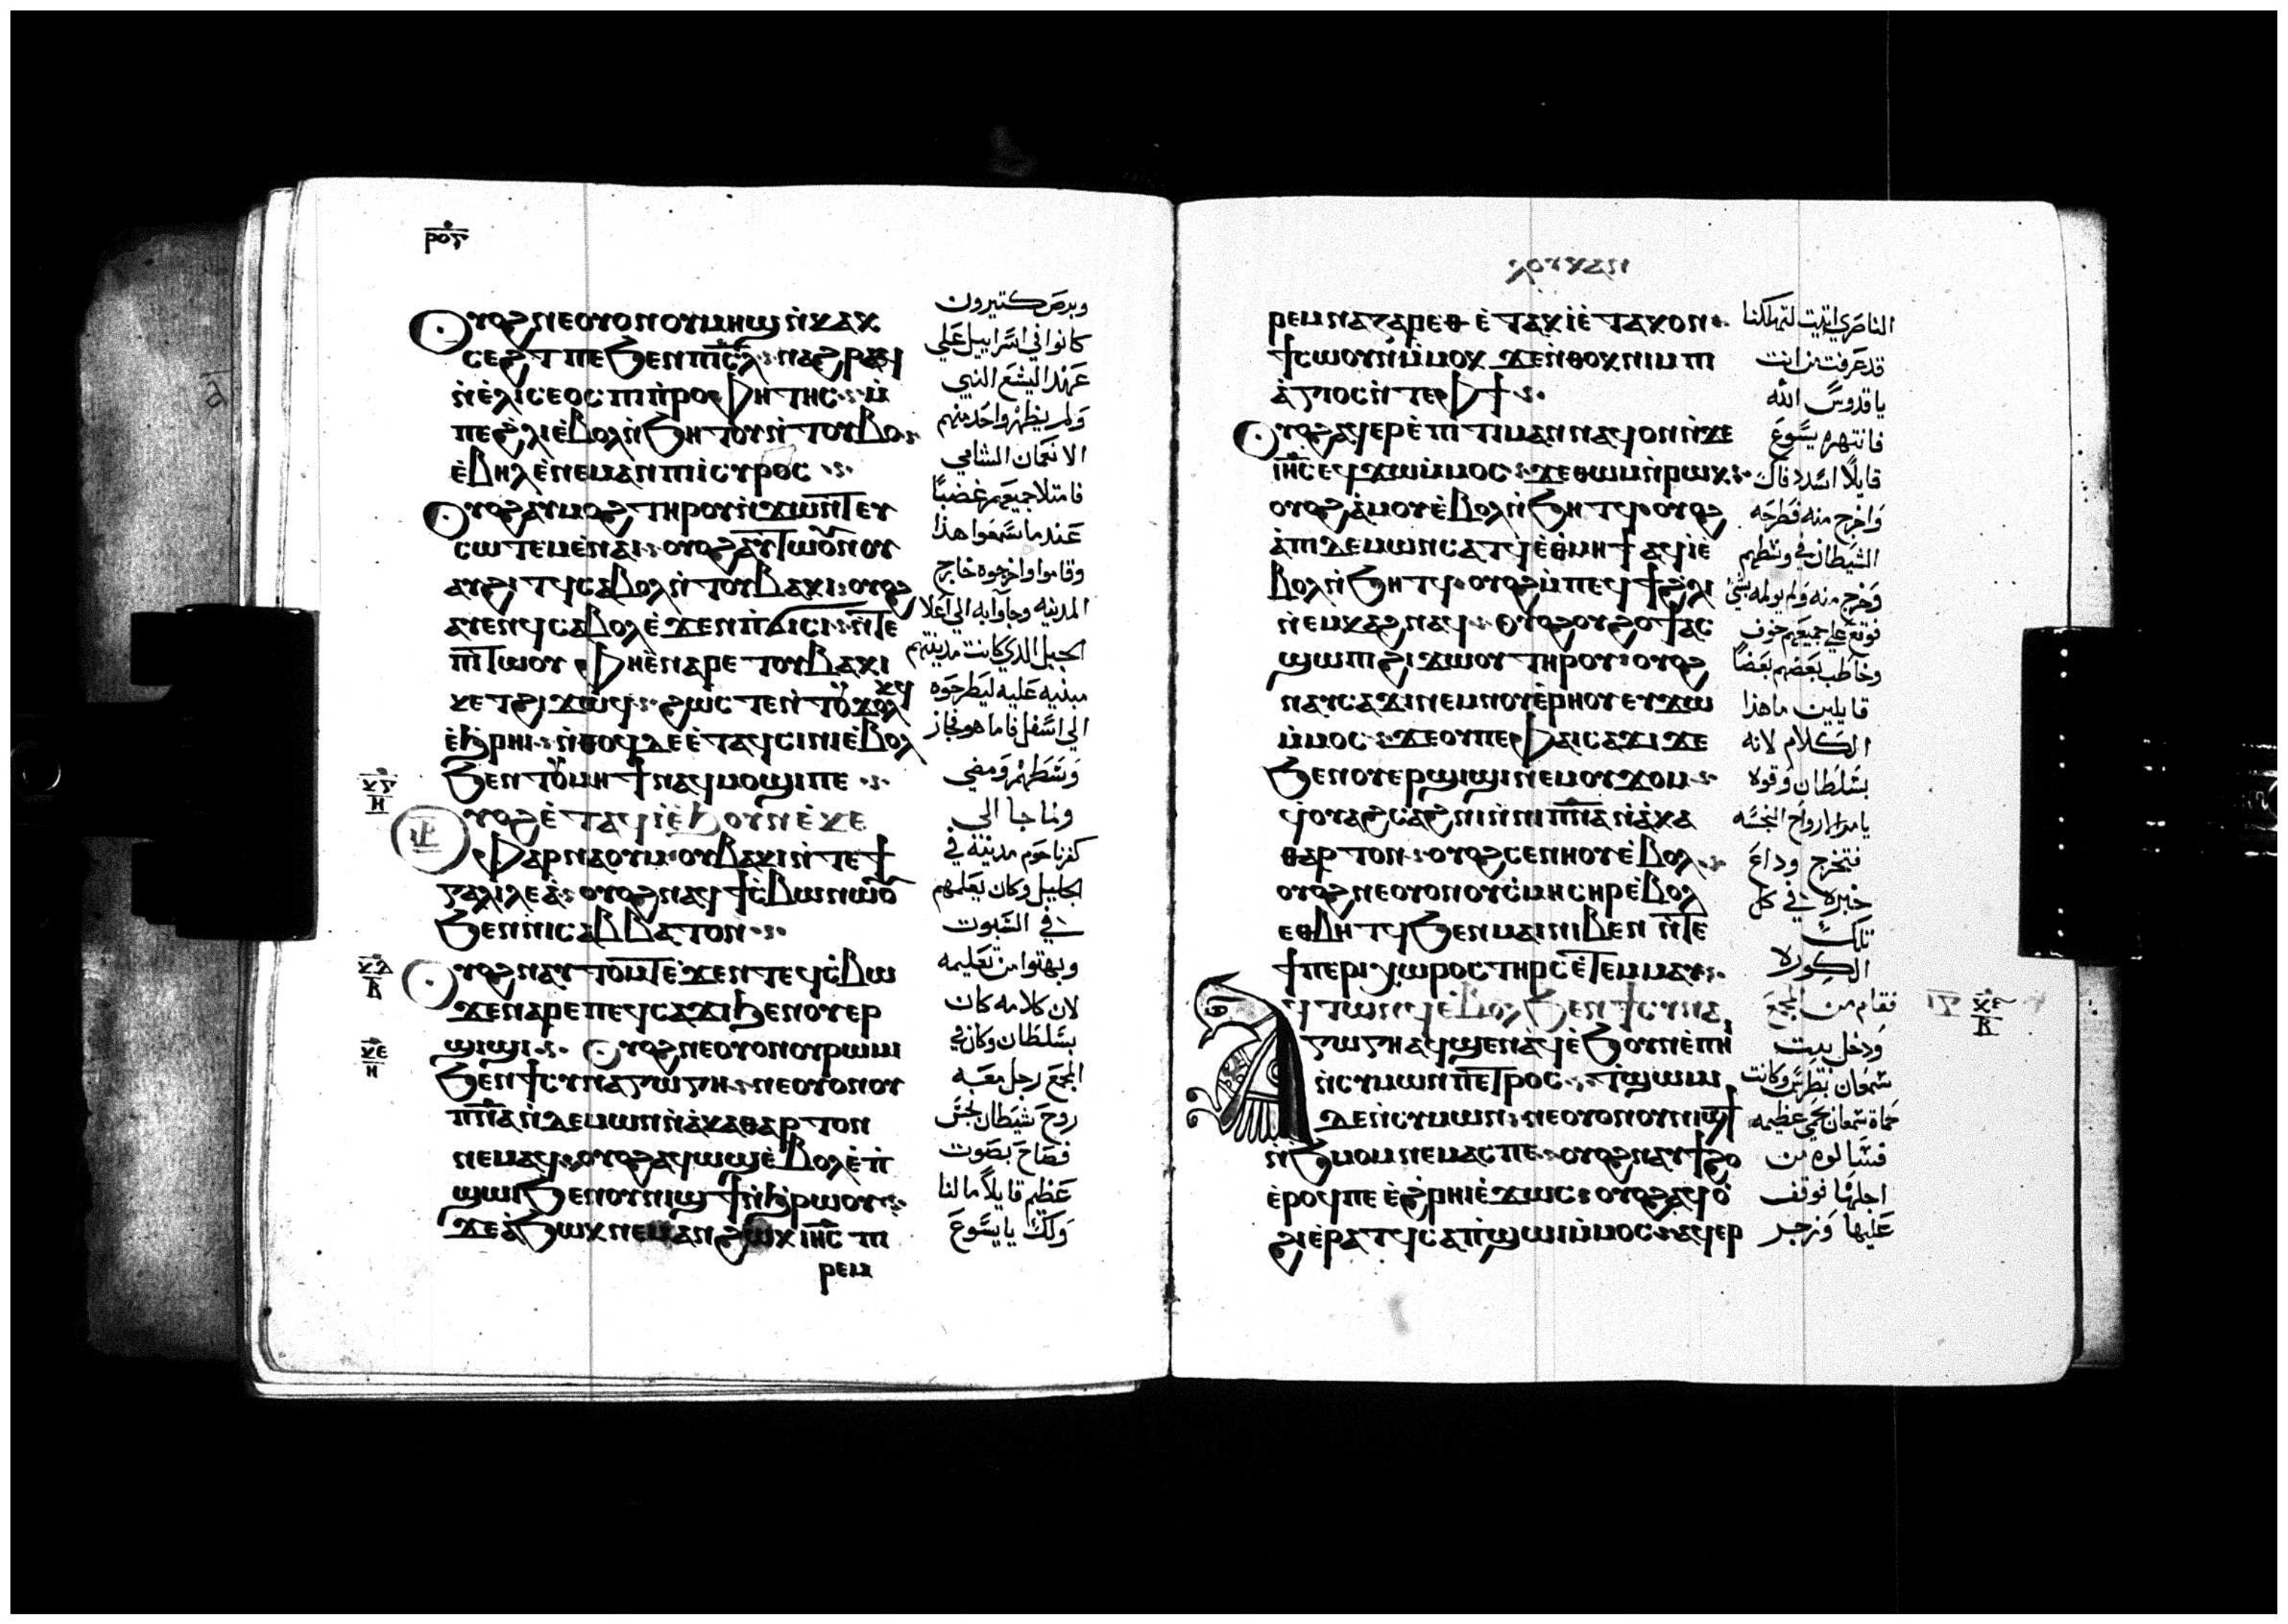 ⲣⲟⲋ
Ⲟⲩⲟϩ ⲛⲉⲟⲩⲟⲛⲟⲩⲙⲏϣ ⲛ̀ⲕⲁⲕ
ⲥⲉϩⲧ ⲡⲉ ϧⲉⲛⲡⲓⲥ̅ⲗ̅ ⲛⲁϩⲣⲁϥ
ⲛ̀ⲉ̀ⲗⲓⲥⲉⲟⲥ ⲡⲓⲡ̀ⲣⲟⲫⲏⲧⲏⲥ ⲙ̀
ⲡⲉϩ̀ⲗⲓ ⲉ̀ⲃⲟⲗ ⲛ̀ϧⲏⲧⲟⲩ ⲛ̀ⲧⲟⲩⲃⲟ
ⲉ̀ⲃⲏⲗ ⲉ̀ⲛⲉⲙⲁⲛ ⲡⲓⲥⲩⲣⲟⲥ
Ⲟⲩⲟϩ ⲁⲩⲙⲟϩ ⲧⲏⲣⲟⲩ ⲛ̀ϫⲱⲛⲧ ⲉⲩ
ⲥⲱⲧⲉⲙ ⲉ̀ⲛⲁⲓ ⲟⲩⲟϩ ⲁⲩⲧⲱⲟⲩⲛⲟⲩ
ⲁⲩϩⲓⲧϥ ⲥⲁⲃⲟⲗ ⲛ̀ⲧⲟⲩⲃⲁⲕⲓ ⲟⲩⲟϩ
ⲁⲩⲉⲛϥ ⲥⲁⲃⲟⲗ ⲉ̀ϫⲉⲛ ⲡ̀ϭⲓⲥⲓ ⲛ̀ⲧⲉ
ⲡⲓⲧⲱⲟⲩ ⲫⲏ ⲉ̀ⲛⲁⲣⲉ ⲧⲟⲩⲃⲁⲕⲓ
ⲕⲉⲧ ϩⲓϫⲱϥ ϩⲱⲥⲧⲉ ⲛ̀ⲧⲟⲩⲕⲟⲗⲕϥ
ⲉ̀ϧⲣⲏⲓ ⲛ̀ⲑⲟϥ ⲇⲉ ⲉ̀ⲧⲁϥⲥⲓⲛⲓ ⲉ̀ⲃⲟⲗ
ϧⲉⲛ ⲧⲟⲩⲙⲏϯ ⲛⲁϥⲙⲟϣⲓ ⲡⲉ
Ⲟⲩⲟϩ ⲉ̀ⲧⲁϥⲓ̀ ⲉ̀ϧⲟⲩⲛ ⲉ̀ⲕⲉ
ⲫⲁⲣⲛⲁⲟⲩⲙ ⲟⲩⲃⲁⲕⲓ ⲛ̀ⲧⲉ ϯ
ⲅⲁⲗⲓⲗⲉⲁ̀ ⲟⲩⲟϩ ⲛⲁϥϯⲥ̀ⲃⲱ ⲛⲱⲟⲩ
ϧⲉⲛ ⲛⲓⲥⲁⲃⲃⲁⲧⲟⲛ
Ⲟⲩⲟϩ ⲛⲁⲩⲧⲟⲙⲧ ⲉ̀ϫⲉⲛ ⲧⲉϥⲥ̀ⲃⲱ
ϫⲉ ⲛⲁⲣⲉ ⲡⲉϥⲥⲁϫⲓ ϧⲉⲛ ⲟⲩⲉⲣ
ϣⲓϣⲓ Ⲟⲩⲟϩ ⲛⲉⲟⲩⲟⲛⲟⲩⲣⲱⲙⲓ
ϧⲉⲛ ϯⲥⲩⲛⲁⲅⲱⲅⲏ ⲛⲉⲟⲩⲟⲛⲟⲩ
ⲡ̅ⲛ̅ⲁ̅ ⲛ̀ⲇⲉⲙⲱⲛ ⲛ̀ⲁ̀ⲕⲁⲑⲁⲣⲧⲟⲛ
ⲛⲉⲙⲁϥ ⲟⲩⲟϩ ⲁϥⲱϣ ⲉ̀ⲃⲟⲗ ⲉ̀ⲡ̀
ϣⲱⲓ ϧⲉⲛ ⲟⲩⲛⲓϣϯ ⲛ̀ϧⲣⲱⲟⲩ
ϫⲉ ⲁ̀ϧⲱⲕ ⲛⲉⲙⲁⲛ ϩⲱⲕ ⲓⲏ̅ⲥ̅ ⲡⲓ
ⲣⲉⲙ
وبرص كتيرون
كانوا في اسراييل علي
عهد اليشع النبي
ولم يظهر واحد منهم
الا نعمان الشامي
فامتلا جميعهم غضبا
عندما سمعوا هذا
وقاموا واخرجوه خارج
المدينه وجاوا به الي اعلا
الجبل الذي كانت مدينتهم
مبنيه عليه ليطرحوه
الي اسفل فاما هو فجاز
وسطهم ومضي
ولما جا الي
كفرناحوم مدينة في
الجليل وكان يعلمهم
في السبوت
وبهتوا من تعليمه
لان كلامه كان
بسلطان وكان في
المجمع رجل معه
روح شيطان نجس
فصاح بصوت
عظيم قايلا ما لنا
ولك يا يسوع
ⲗⲟⲩⲕⲁⲛ
ⲣⲉⲙⲛⲁⲍⲁⲣⲉⲑ ⲉ̀ⲧⲁⲕⲓ̀ ⲉ̀ⲧⲁⲕⲟⲛ
ϯⲥⲱⲟⲩⲛ ⲙ̀ⲙⲟⲕ ϫⲉ ⲛ̀ⲑⲟⲕ ⲛⲓⲙ ⲡⲓ
ⲁ̀ⲅⲓⲟⲥ ⲛ̀ⲧⲉ ⲫϯ
Ⲟⲩⲟϩ ⲁϥⲉⲣⲉ̀ⲡⲓⲧⲓⲙⲁⲛ ⲛⲁϥ ⲟⲛ ⲛ̀ϫⲉ
ⲓⲏ̅ⲥ̅ ⲉϥϫⲱ ⲙ̀ⲙⲟⲥ ϫⲉ ⲑⲱⲙ ⲛ̀ⲣⲱⲕ
ⲟⲩⲟϩ ⲁ̀ⲙⲟⲩ ⲉ̀ⲃⲟⲗ ⲛ̀ϧⲏⲧϥ ⲟⲩⲟϩ
ⲁ̀ⲡⲓⲇⲉⲙⲱⲛ ⲥⲁⲧϥ ⲉ̀ⲑⲙⲏϯ ⲁϥⲓ̀ ⲉ̀
ⲃⲟⲗ ⲛ̀ϧⲏⲧϥ ⲟⲩⲟϩ ⲙ̀ⲡⲉϥϯϩ̀ⲗⲓ
ⲛ̀ⲉⲙⲕⲁϩ ⲛⲁϥ Ⲟⲩⲟϩ ⲟⲩϩⲟϯ ⲁⲥ
ϣⲱⲡⲓ ϩⲓϫⲱⲟⲩ ⲧⲏⲣⲟⲩ ⲟⲩⲟϩ
ⲛⲁⲩⲥⲁϫⲓ ⲛⲉⲙ ⲛⲟⲩⲉ̀ⲣⲏⲟⲩ ⲉⲩϫⲱ
ⲙ̀ⲙⲟⲥ ϫⲉ ⲟⲩ ⲡⲉ ⲫⲁⲓⲥⲁϫⲓ ϫⲉ
ϧⲉⲛ ⲟⲩⲉⲣϣⲓϣⲓ ⲛⲉⲙ ⲟⲩϫⲟⲙ
ϥⲟⲩⲁϩⲥⲁϩⲛⲓ ⲛ̀ⲛⲓⲡ̅ⲛ̅ⲁ̅ ⲛ̀ⲁ̀ⲕⲁ
ⲑⲁⲣⲧⲟⲛ ⲟⲩⲟϩ ⲥⲉⲛⲏⲟⲩ ⲉ̀ⲃⲟⲗ
ⲟⲩⲟϩ ⲛⲉⲟⲩⲟⲛⲟⲩⲥ̀ⲙⲏ ⲥⲏⲣ ⲉ̀ⲃⲟⲗ
ⲉⲑⲃⲏⲧϥ ϧⲉⲛ ⲙⲁⲓ ⲛⲓⲃⲉⲛ ⲛ̀ⲧⲉ
ϯⲡⲉⲣⲓⲭⲱⲣⲟⲥ ⲧⲏⲣⲥ ⲉ̀ⲧⲉⲙⲙⲁⲩ
Ⲁϥⲧⲱⲛϥ ⲉ̀ⲃⲟⲗ ϧⲉⲛ ϯⲥⲩⲛⲁ
ⲅⲱⲅⲏ ⲁϥϣⲉⲛⲁϥ ⲉ̀ϧⲟⲩⲛ ⲉ̀ⲡⲏⲓ
ⲛ̀ⲥⲓⲙⲱⲛ ⲡⲉⲧⲣⲟⲥ ⲧ̀ϣⲱⲙⲓ
ⲇⲉ ⲛ̀ⲥⲓⲙⲱⲛ ⲛⲉⲟⲩⲟⲛⲟⲩⲛⲓϣϯ
ⲛ̀ϧⲙⲟⲙ ⲛⲉⲙⲁⲥ ⲡⲉ ⲟⲩⲟϩ ⲛⲁⲩϯϩⲟ
ⲉ̀ⲣⲟϥ ⲡⲉ ⲉ̀ϩ̀ⲣⲏⲓ ⲉ̀ϫⲱⲥ ⲟⲩⲟϩ ⲁϥⲟ̀
ϩⲓ ⲉ̀ⲣⲁⲧϥ ⲥⲁⲡ̀ϣⲱⲓ ⲙ̀ⲙⲟⲥ ⲁϥⲉⲣ
الناصري اتيت لتهلكنا
قد عرفت من انت
يا قدوس الله
فانتهره يسوع
قايلا اسدد فاك
واخرج منه فطرحه
الشيطان في وسطهم
وخرج منه ولم يولمه بشي
فوقع علي جميعهم خوف
وخاطب بعضهم بعضا
قايلين ما هذا
الكلام لانه
بسلطان وقوه
يامر الارواح النجسه
فتخرج وداع
خبره في كل
تلك
الكوره
فقام من المجمع
ودخل بيت
سمعان بطرس وكانت
حماة سمعان بحمي عظيمه
فسالوه من
اجلها فوقف
عليها وزجر